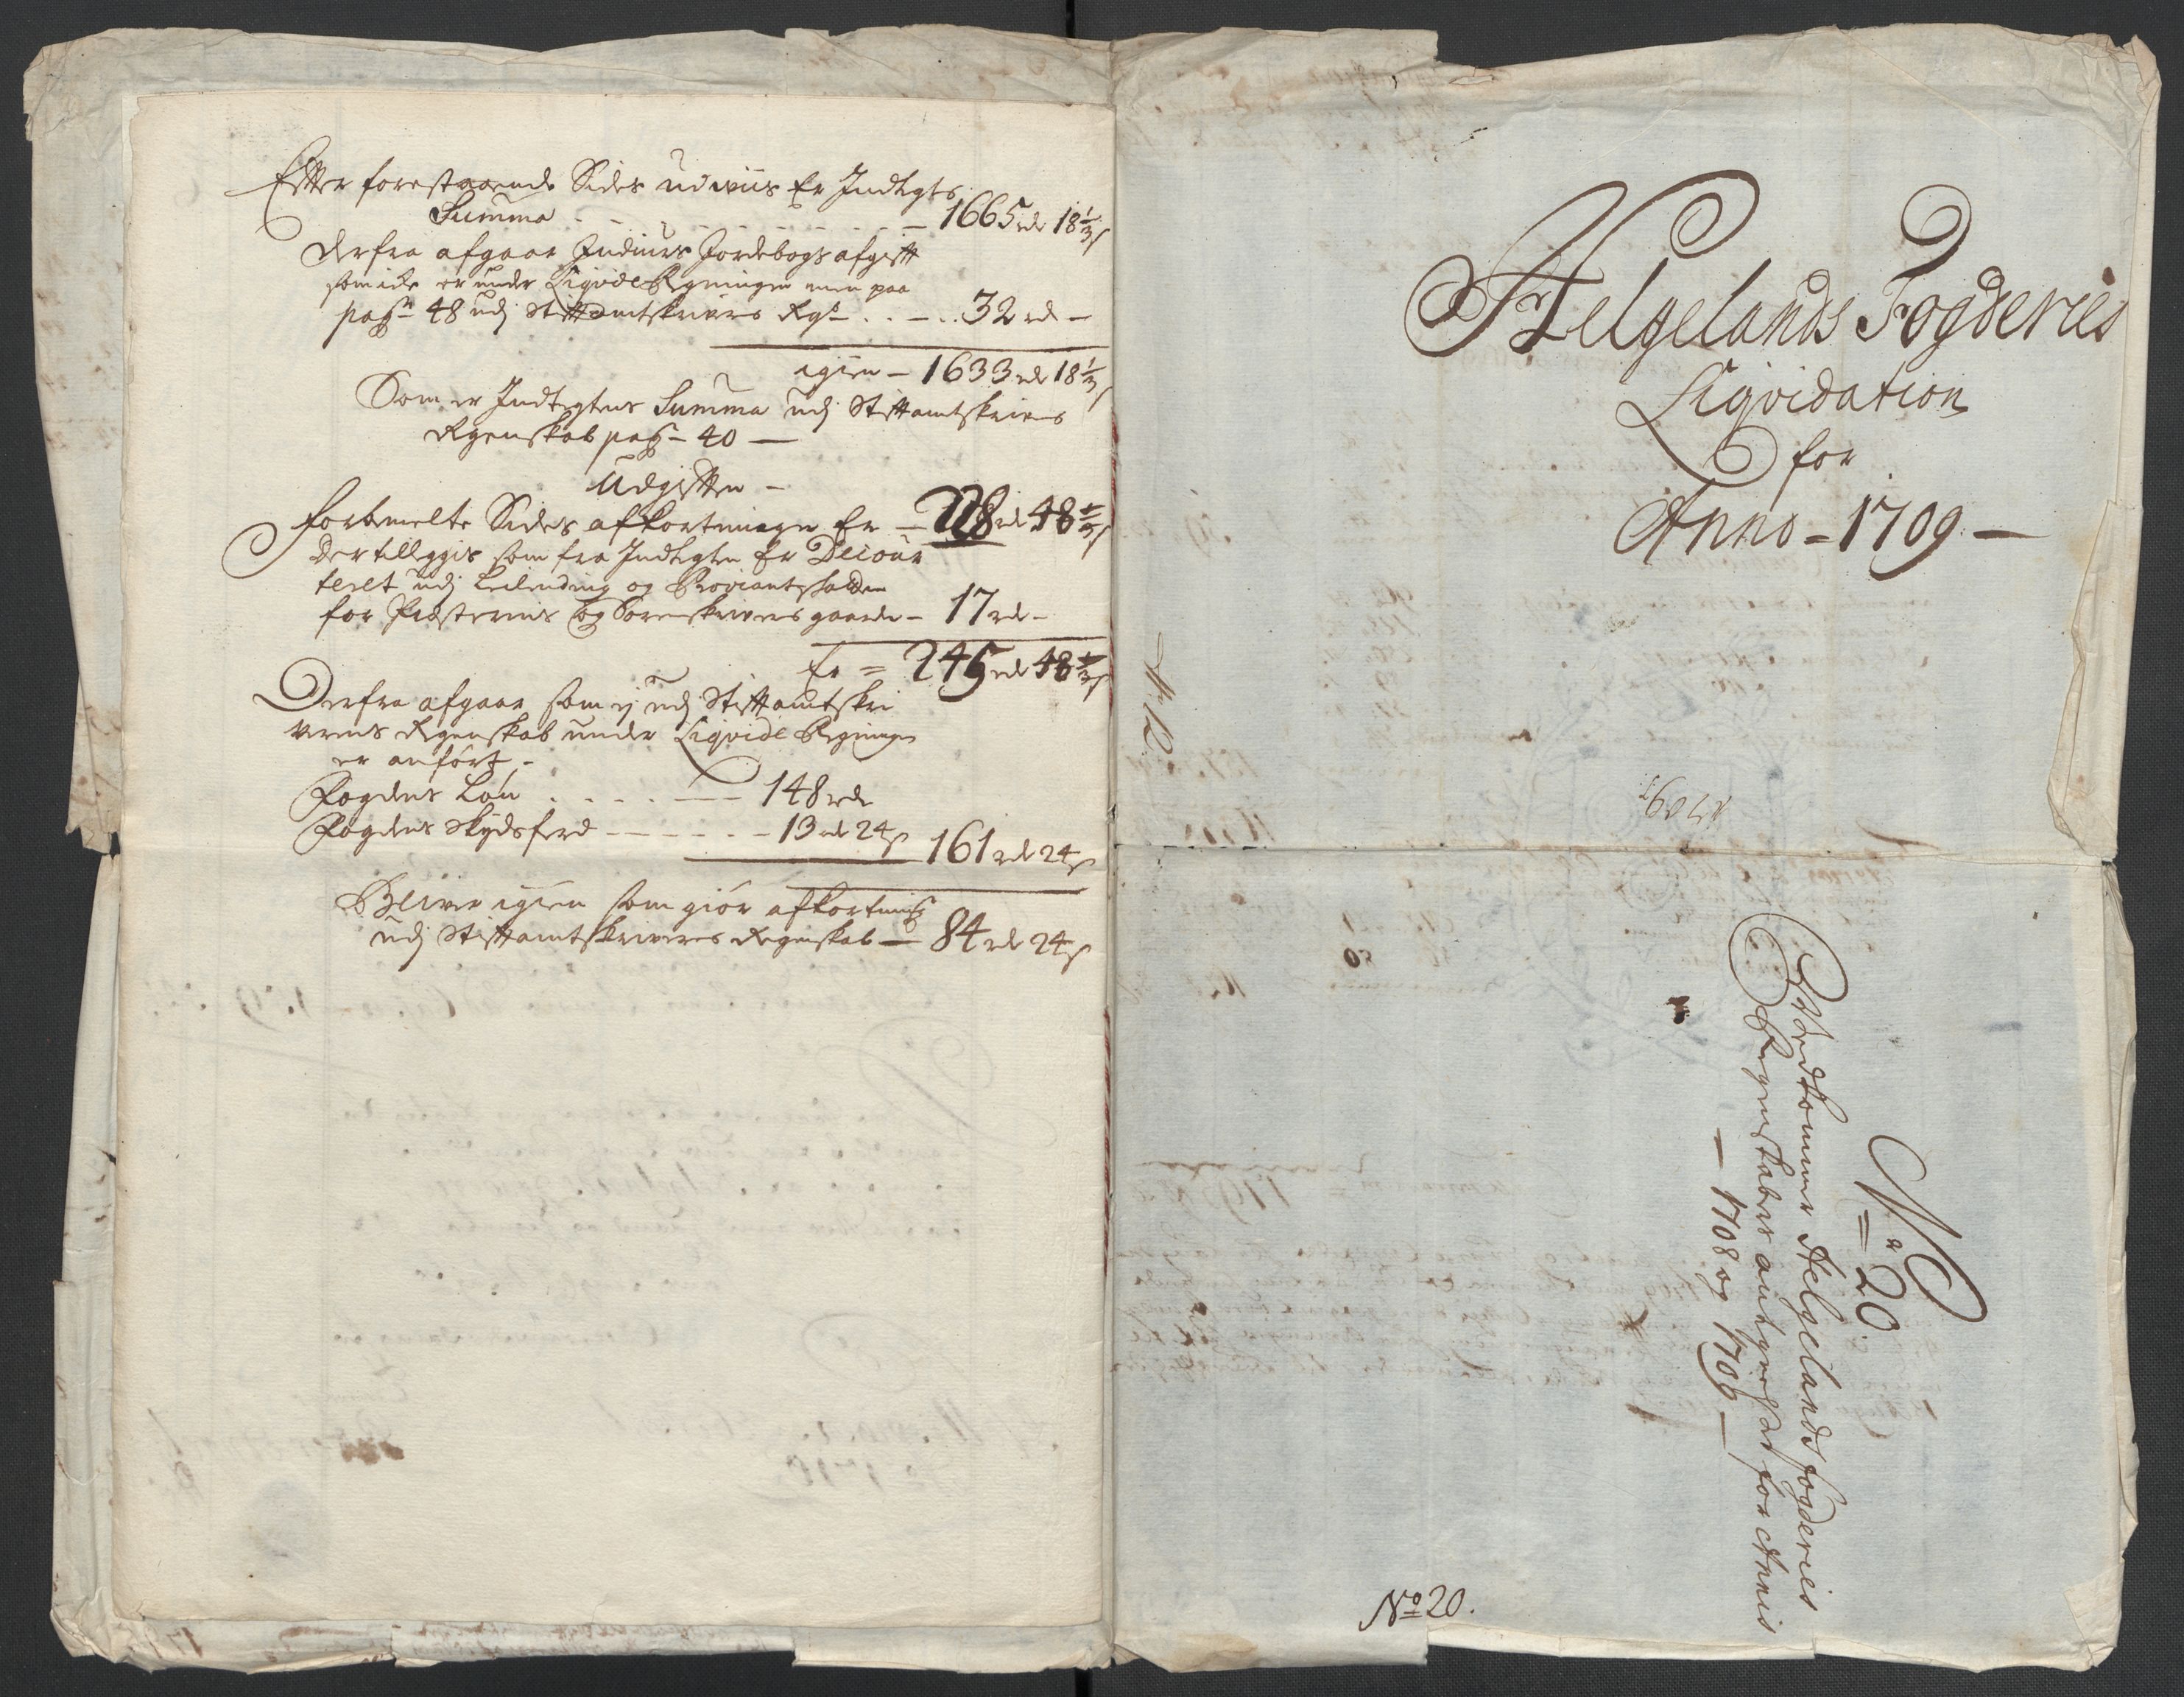 Efter forestaaende Sides udwiis Er Indtegts
Summa - - - - - - - - 1665 rdr 18 1/3 s
Derfra afgaar Jordebogs afgifft
som icke er under Liqvide Regningen men paa
pag: 48 udj Stifftamtskrivers Rgs - . . - . . 32 rd -
igien - 1633 rdr 18 1/3 s
Som er Indtegtens Summa udj Stifftamtskrivers
Regenskab pag - 40 —
Udgifften -
Forbemelte Sides afkortninger Er — 228 rdr 48 s
Der tillegges som fra Indtegten Er Decour
teret udj Leilending og Proviantskatten
for Præsternis og Sorenskrivers gaarde - 17 rdr -
Er = 245 rdr 48 s
Derfra afgaar som ej udj Stifftamtskri
verens Regenskab under Liqvide Regninger
er anført -
Fogdens Løn . . . . . — 148 rdr
Fogdens Skydsferd - - - - - - 13 rdr 24 s 161 rdr 24 s
Bliver igien som giør afkortning
udj Stifftamtskriverens Regenskab — 84 rdr 24 s
Helgelands Fogderies
Liqvidation
for
Anno - 1709 —
N: 12
1709
No 20.
Vedkommer Helgelands fogderies
Regenskaber for Annis
— 1708 og 1709 —
No 20.